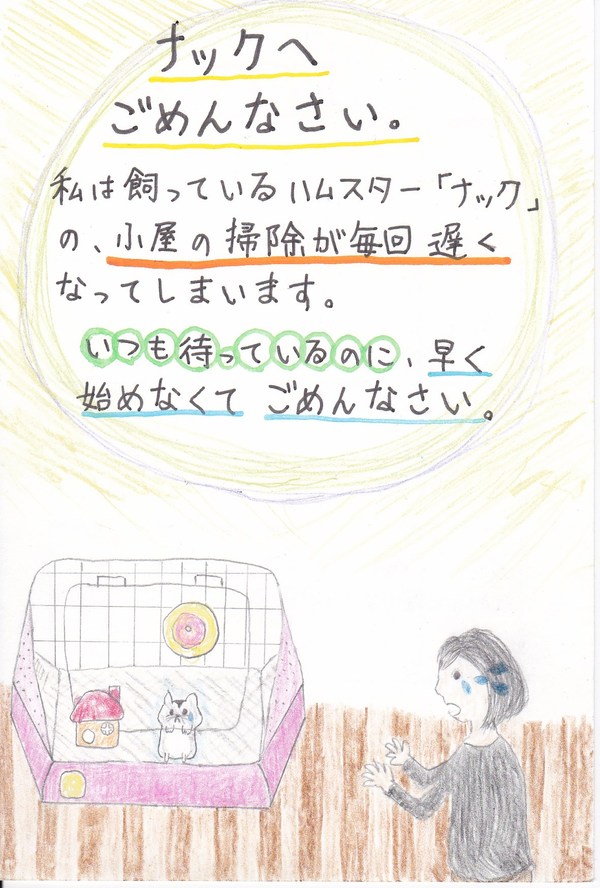 ナックへ
ごめんなさい。
私は飼っているハムスター「ナック」
の、小屋の掃除が毎回遅く
なってしまいます。
いつも待っているのに、早く
始めなくてごめんなさい。